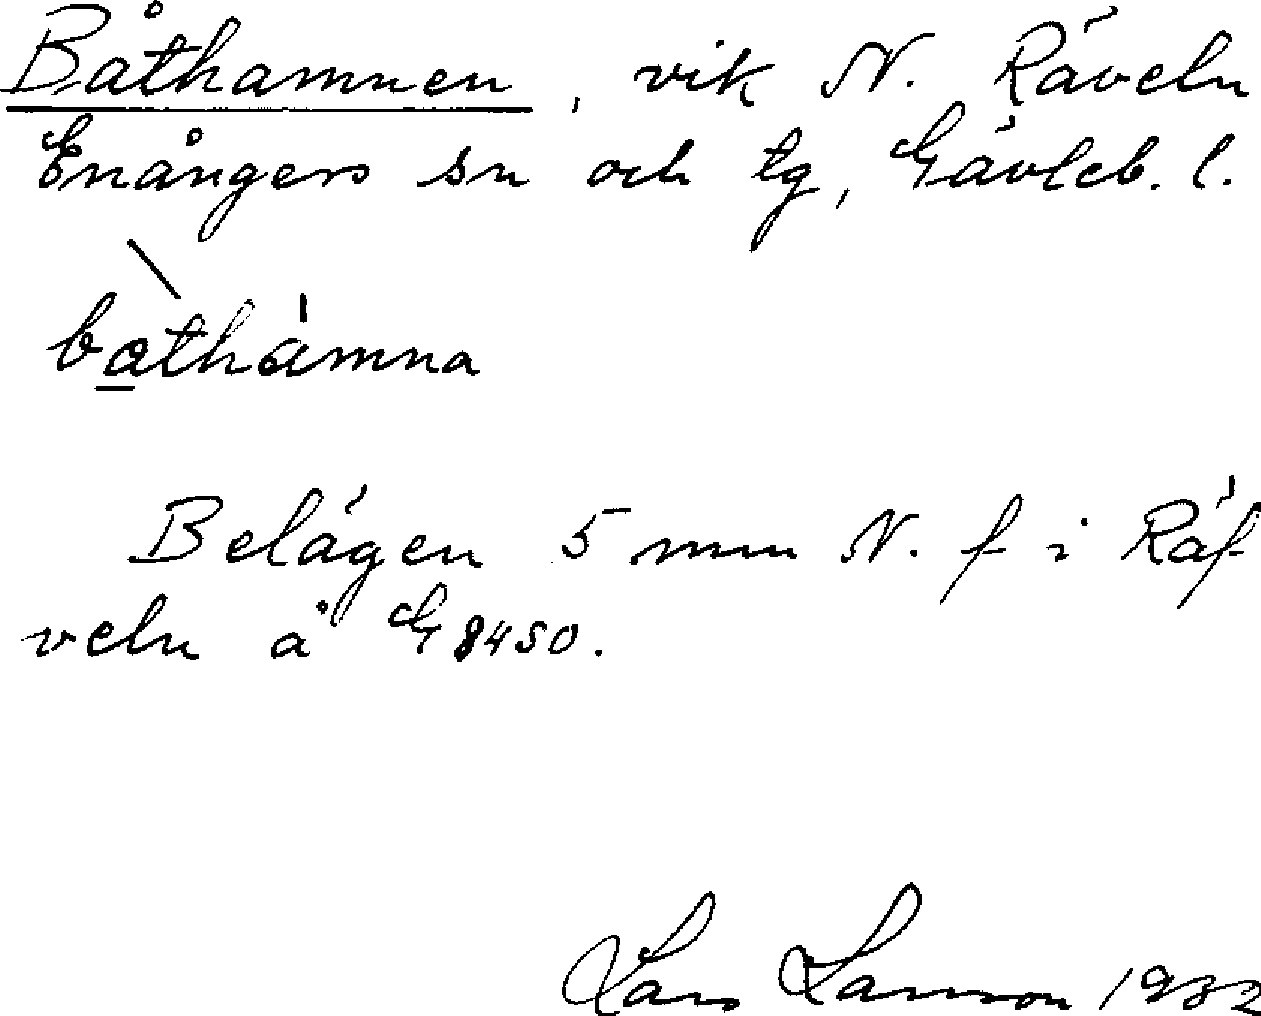 Båthamnen, vik N. Räveln
Enångers sn och tg, Gävleb. l.
bathamna
Belägen 5 mm N. f i Räf-
veln å G 8450.
Lars Larsson 1932